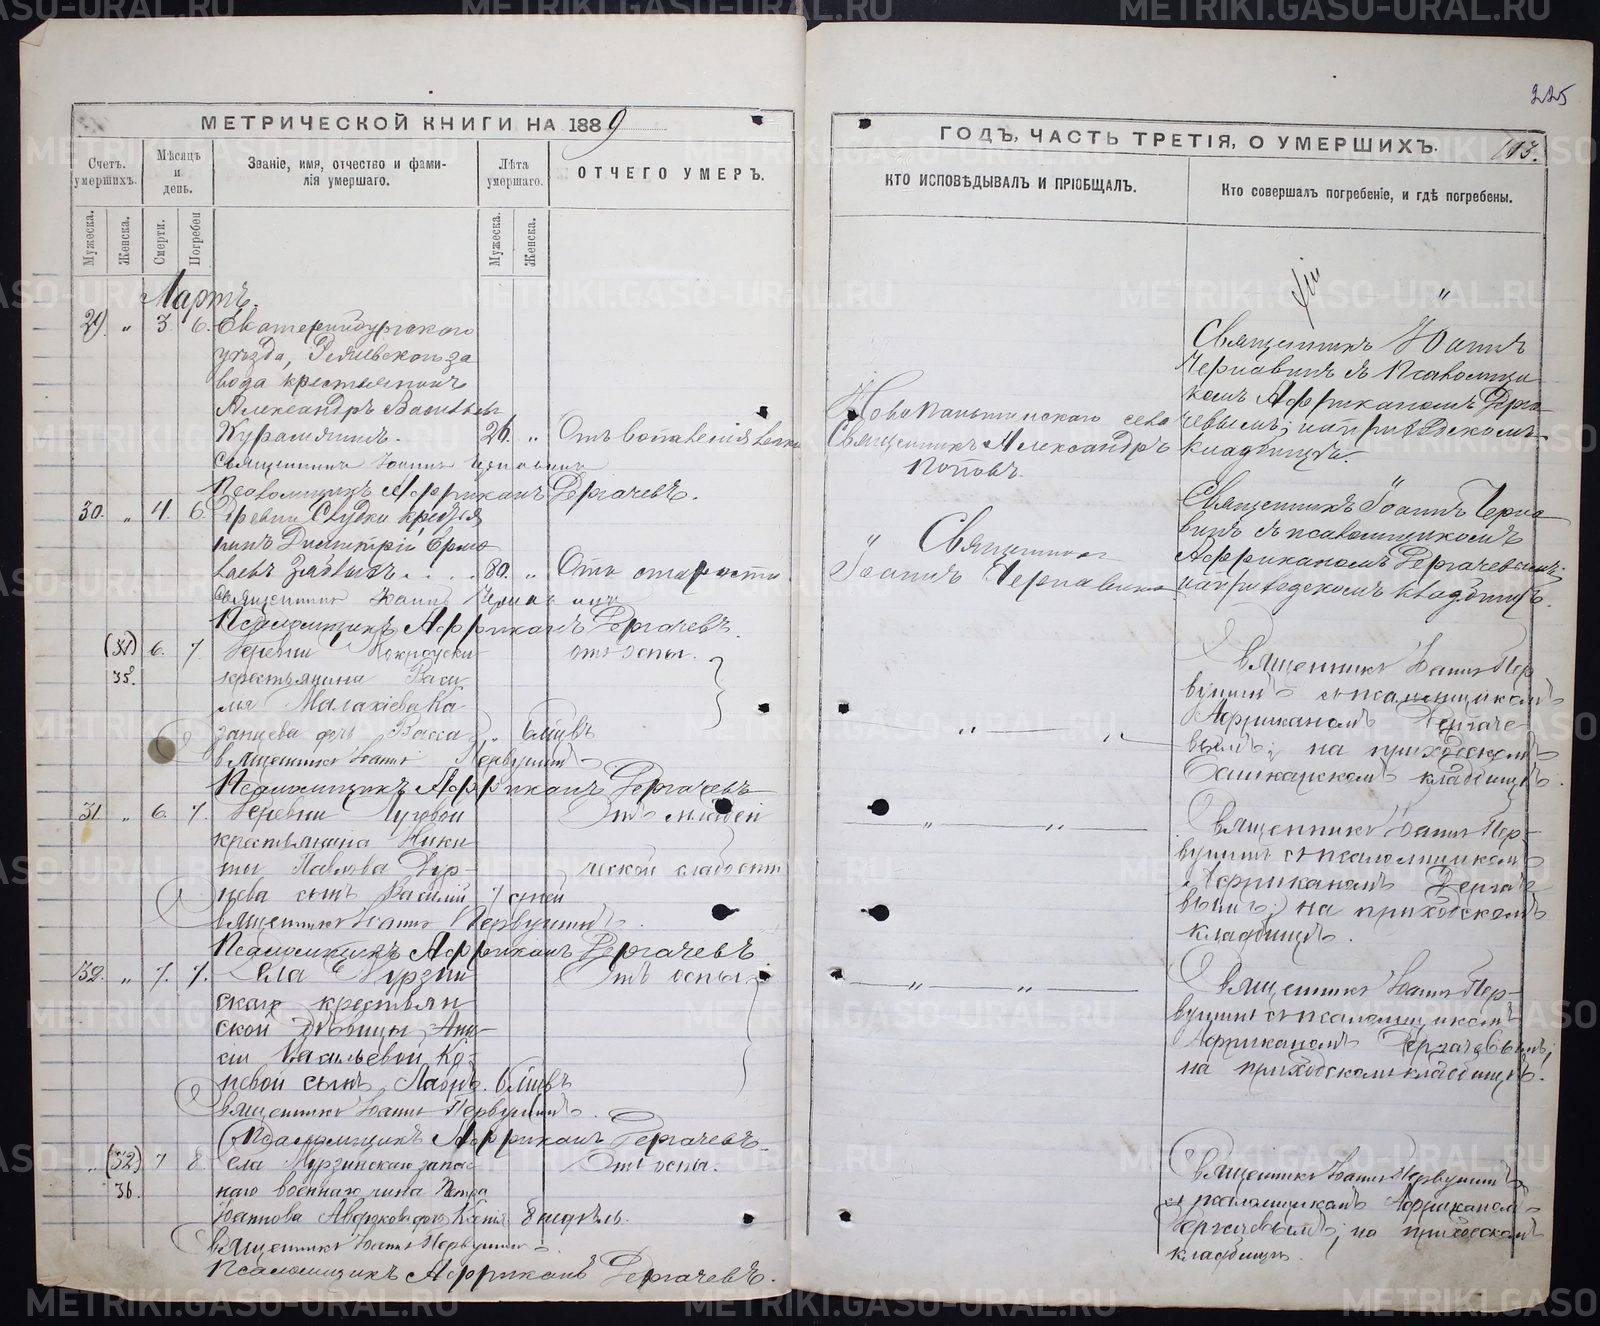 225
МЕТРИЧЕСКОЙ КНИГИ НА 1889
Счетъ умершихъ.
Мѣсяцъ и день.
Званіе, имя, отчество и фамилія умершаго.
Лѣта умершаго.
ОТЧЕГО УМЕРЪ.
Мужеска.
Женска.
Смерти.
Погребен
Мужеска.
Женска.
Мартъ.
29 " 3. 6. Екатеринбургскаго
уѣзда, завода крестьянинъ
Александръ Васильевъ
26. " Отъ воспаленія
Священникъ Іоаннъ Чернавинъ
Псаломщикъ Африканъ Дергачевъ.
30. " 4. 6. Деревни крестья
нинъ Димитрій Ермо
лаевъ 80. " Отъ старости.
Священникъ Іоаннъ Чернавинъ
Псаломщикъ Африканъ Дергачевъ.
(31) 6. 7. Деревни отъ оспы.
35. крестьянина Васи
лья Малахіева Ка
занцева дочь Васса " 6 мцвъ
Священникъ Іоаннъ Первушинъ
Псаломщикъ Африканъ Дергачевъ
31 " 6. 7. Деревни Луговой Отъ младен
крестьянина Ники
ты Павлова ческой слабости
сынъ Василій 7 дней
Священникъ Іоаннъ Первушинъ.
Псаломщикъ Африканъ Дергачевъ
32. " 7. 7. Села Мурзин Отъ оспы
скаго крестьян
ской дѣвицы Ани
сіи Васильевой Ко
невой сынъ 6 мцвъ
Священникъ Іоаннъ Первушинъ.
Псаломщикъ Африканъ Дергачевъ
" (32) 7 8. Села Мурзинскаго запас Отъ оспы.
36. наго военнаго чина Петра
Іоаннова дочь 8 недѣль.
Священникъ Іоаннъ Первушинъ
Псаломщикъ Африканъ Дергачевъ.
ГОДЪ, ЧАСТЬ ТРЕТІЯ, О УМЕРШИХЪ.
113.
КТО ИСПОВѢДЫВАЛЪ И ПРІОБЩАЛЪ.
Кто совершалъ погребеніе, и гдѣ погребены.
"
Священникъ Іоаннъ
Чернавинъ съ псаломщи
комъ Африканомъ Дерга
Новопаньшинскаго села чевымъ; на приходскомъ
Священникъ Александръ кладбищѣ.
Поповъ.
Священникъ Іоаннъ Черна
винъ съ псаломщикомъ
" Священникъ Африканомъ Дергачевымъ;
Іоаннъ Чернавинъ на приходскомъ кладбищѣ.
Священникъ Іоаннъ Пер
вушинъ съ псаломщикомъ
Африканомъ Дергаче
" " вымъ; на приходскомъ
Башкарскомъ кладбищѣ.
" " Священникъ Іоаннъ Пер
вушинъ съ псаломщикомъ
Африканомъ Дергаче
вымъ; на приходскомъ
кладбищѣ.
" " Священникъ Іоаннъ Пер
вушинъ съ псаломщикомъ
Африканомъ Дергачевымъ;
на приходскомъ кладбищѣ.
Священникъ Іоаннъ Первушинъ
съ псаломщикомъ Африканом
Дергачевымъ; на приходскомъ
кладбищѣ.
METRIKI.GASO-URAL.RU